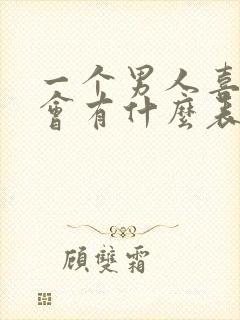 一个男人喜
會有什麼表
顾雙霜